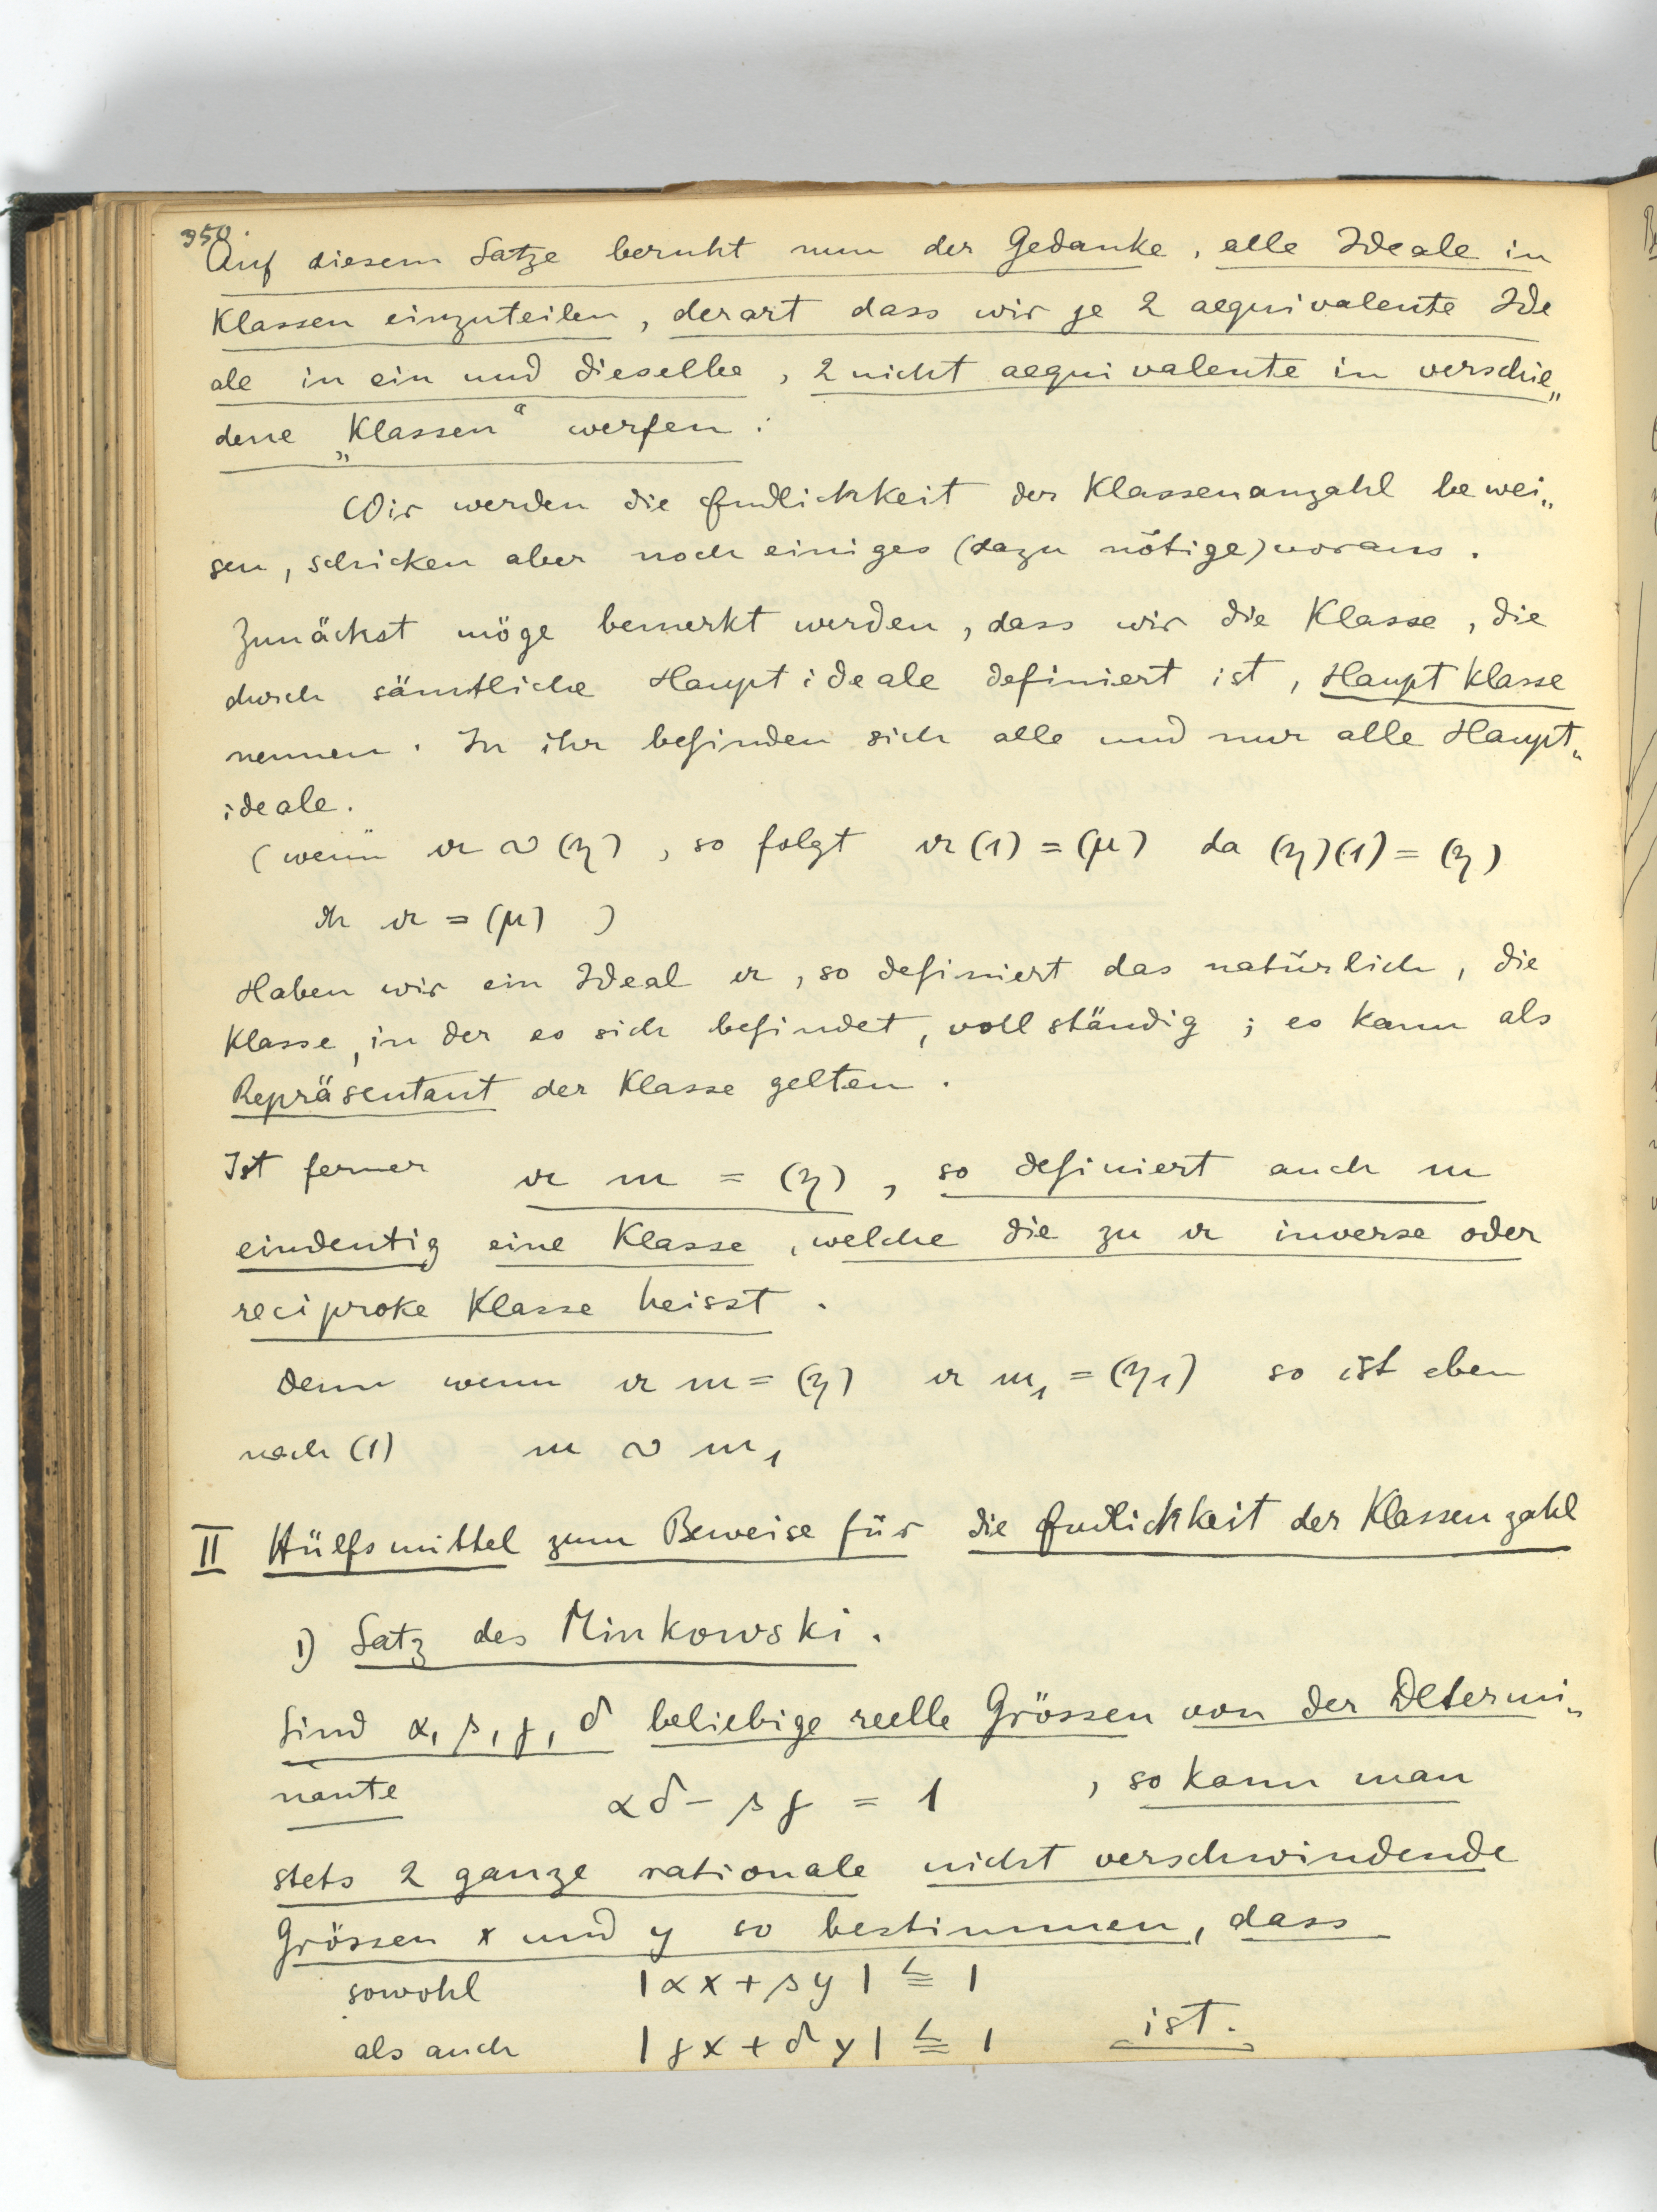 350.
Auf diesem Satze beruht nun der Gedanke, alle Ideale in
Klassen einzuteilen, derart dass wir je 2 aequivalente Ide
ale in ein und dieselbe, 2 nicht aequivalente in verschie„
dene „Klassen“ werfen:
Wir werden die Endlichkeit der Klassenanzahl bewei„
sen, schicken aber noch einiges (dazu nötige) voraus.
Zunächst möge bemerkt werden, dass wir die Klasse, die
durch sämtliche Hauptideale definiert ist, Hauptklasse
nennen. In ihr befinden sich alle und nur alle Haupt„
ideale.
(wenn 𝔞 ∾ (η), so folgt 𝔞(1) = (μ) da (η)(1) = (η)
dh 𝔞 = (μ) )
Haben wir ein Ideal 𝔞, so definiert das natürlich, die
Klasse, in der es sich befindet, vollständig; es kann als
Repräsentant der Klasse gelten.
Ist ferner 𝔞 𝔪 = (η), so definiert auch 𝔪
eindeutig eine Klasse, welche die zu 𝔞 inverse oder
reciproke Klasse heisst.
denn wenn 𝔞 𝔪 = (η) 𝔞 𝔪₁ = (η₁) so ist eben
nach (1) 𝔪 ∾ 𝔪₁
II Hülfsmittel zum Beweise für die Endlichkeit der Klassenzahl
1) Satz des Minkowski.
Sind α, β, γ, δ beliebige reelle Grössen von der Determi„
nante αδ - βγ = 1, so kann man
stets 2 ganze rationale nicht verschwindende
Grössen x und y so bestimmen, dass
sowohl |αx + βy| ≦ 1
als auch |γx + δy| ≦ 1 ist.